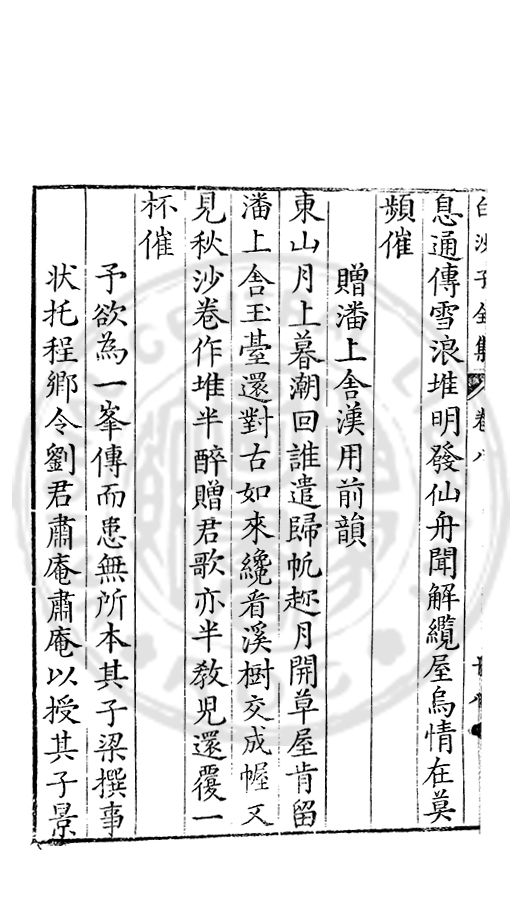 白沙子全集 卷八
息通傳雪浪堆明發仙舟聞解纜屋烏情在莫
頻催
贈潘上舍漢用前韻
東山月上暮潮回誰遣歸帆趂月開草屋肯留
潘上舍玉臺還對古如來纔看溪樹交成幄又
見秋沙卷作堆半醉贈君歌亦半教兒還覆一
杯催
予欲為一峯傳而患無所本其子梁撰事
状托程鄉令劉君肅庵肅庵以授其子景